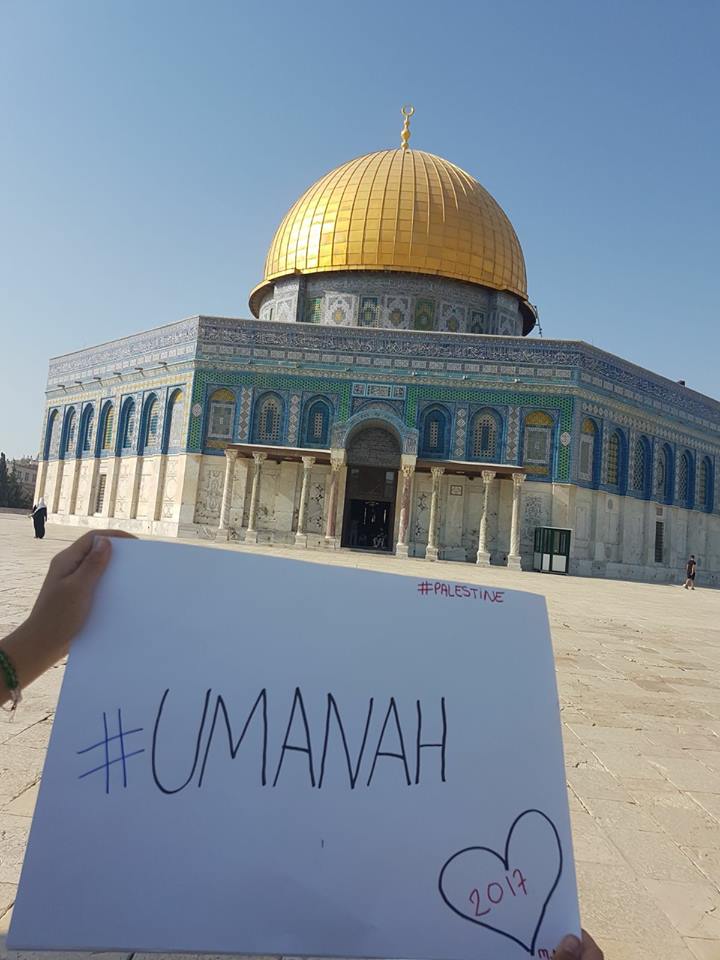 #PALESTINE
#UMANAH
2017